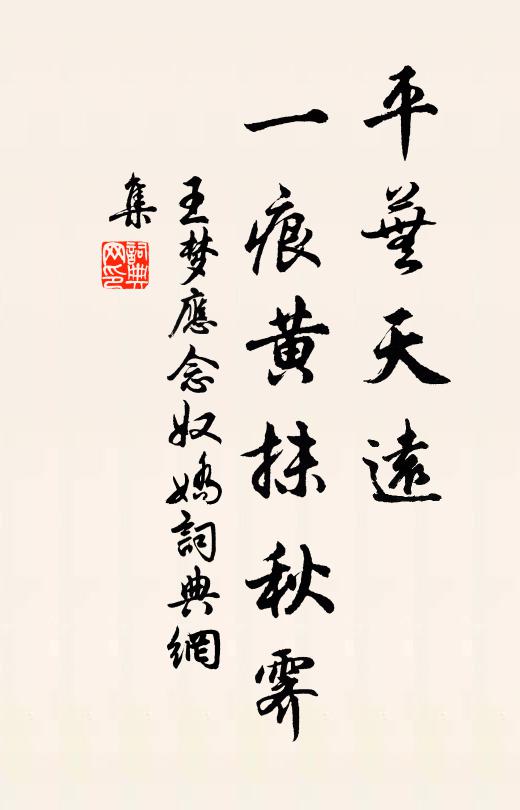 平蕪天遠
一痕黄抹秋霽
王梦應念奴嬌詞典網
集
詞典網印